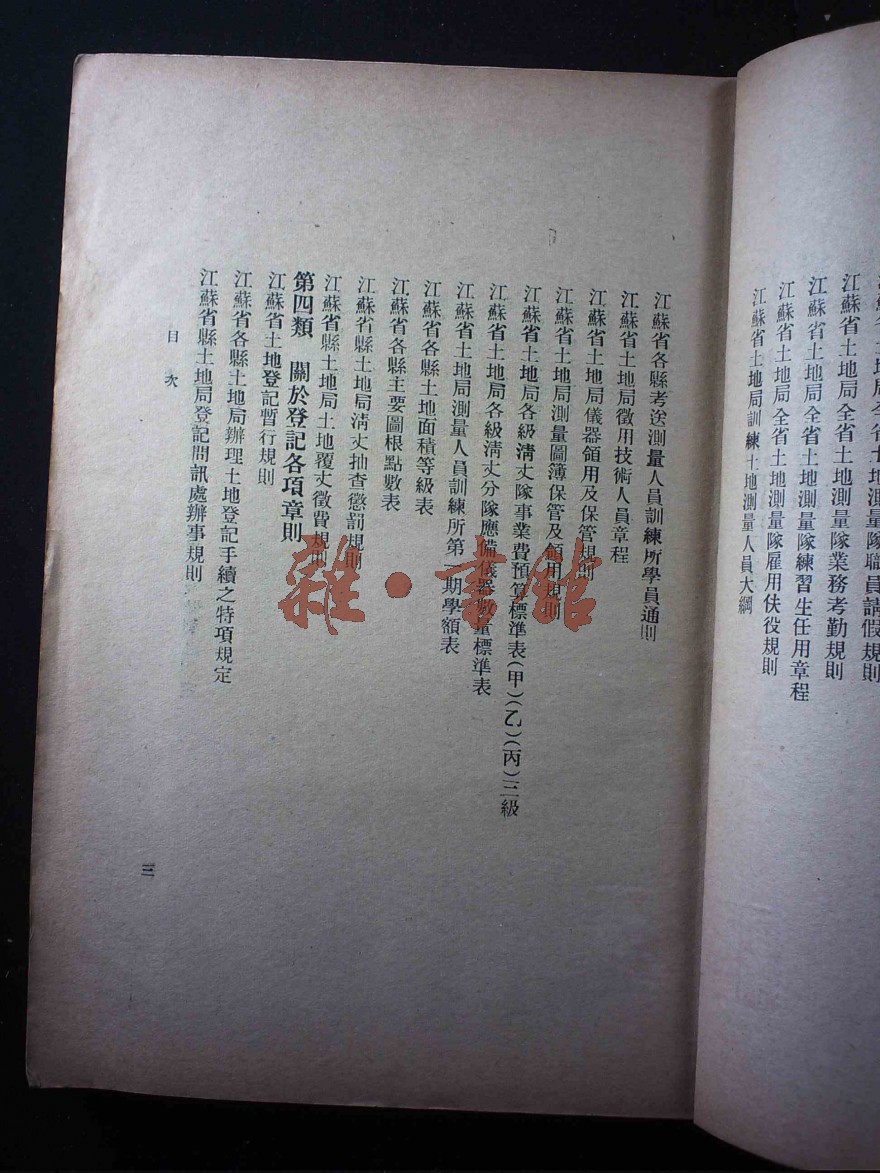 江蘇省土地局全省土地測量隊職員請假規則
江蘇省土地局全省土地測量隊業務考勤規則
江蘇省土地局全省土地測量隊練習生任用章程
江蘇省土地局全省土地測量隊雇用伕役規則
江蘇省土地局訓練土地測量人員大綱
江蘇省各縣考送測量人員訓練所學員通則
江蘇省土地局徵用技術人員章程
江蘇省土地局儀器領用及保管規則
江蘇省土地局測量圖簿保管及領用規則
江蘇省土地局各級清丈隊事業費預算標準表(甲)(乙)(丙)三級
江蘇省土地局各級清丈分隊應備儀器數量標準表
江蘇省土地局測量人員訓練所第一期學額表
江蘇省各縣土地面積等級表
江蘇省各縣主要圖根點數表
江蘇省縣土地局清丈抽查懲罰規則
江蘇省縣土地局土地覆丈徵費規則
第四類 關於登記各項章則
江蘇省土地登記暫行規則
江蘇省各縣土地局辦理土地登記手續之特項規定
江蘇省縣土地局登記問訊處辦事規則
目 次
三
雜·書館